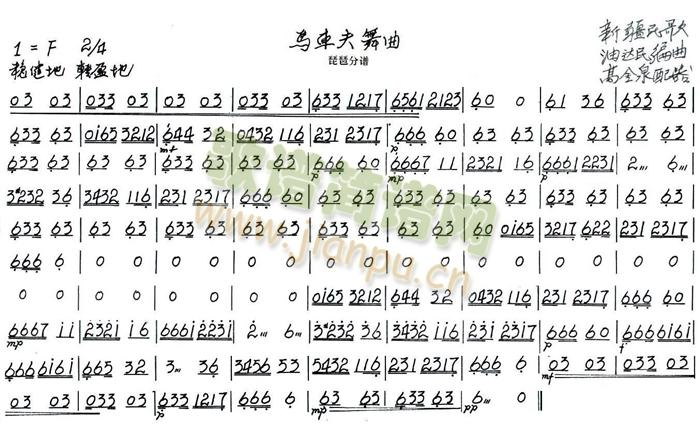 马车夫舞曲
琵琶分谱
1 = F 2/4
稳健地 轻盈地
新疆民歌
油达民编曲
高全泉配器
03 03 | 033 03 | 03 03 | 033 03 | 633 1217 | 6561 2123 | 60 0 | 61 36 | 633 63
633 63 | 0165 3212 | 644 32 | 0432 116 | 231 2317 | 666 60 | 63 63 | 633 63 | 63 63
633 63 | 63 63 | 633 63 | 63 63 | 666 60 | 6667 11 | 2321 16 | 6661 2231 | 2 6
3232 36 | 3432 116 | 231 2317 | 666 60 | 63 63 | 633 63 | 63 63 | 633 63 | 63 63
633 63 | 63 63 | 633 63 | 63 63 | 633 63 | 63 63 | 60 0165 | 3217 622 | 231 2317
666 6 | 0 0 | 0 0 | 0 0 | 0 0 | 0 0 | 0 0 | 0 0 | 0 0
0 0 | 0 0 | 0 0 | 0 0 | 0165 3212 | 644 32 | 0432 116 | 231 2317 | 666 60
6667 11 | 2321 16 | 6661 2231 | 2 6 | 3232 36 | 3432 116 | 231 2317 | 666 60 | 666 6161
666 6161 | 665 32 | 3 36 | 3456 53 | 5432 116 | 231 2317 | 666 6 | 03 03 | 033 03
03 03 | 033 03 | 633 1217 | 666 6 | 63 63 | 633 63 | 6 0
歌谱简谱网
www.jianpu.cn